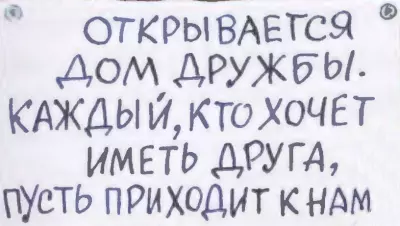 ОТКРЫВАЕТСЯ
ДОМ ДРУЖБЫ.
КАЖДЫЙ, КТО ХОЧЕТ
ИМЕТЬ ДРУГА,
ПУСТЬ ПРИХОДИТ К НАМ